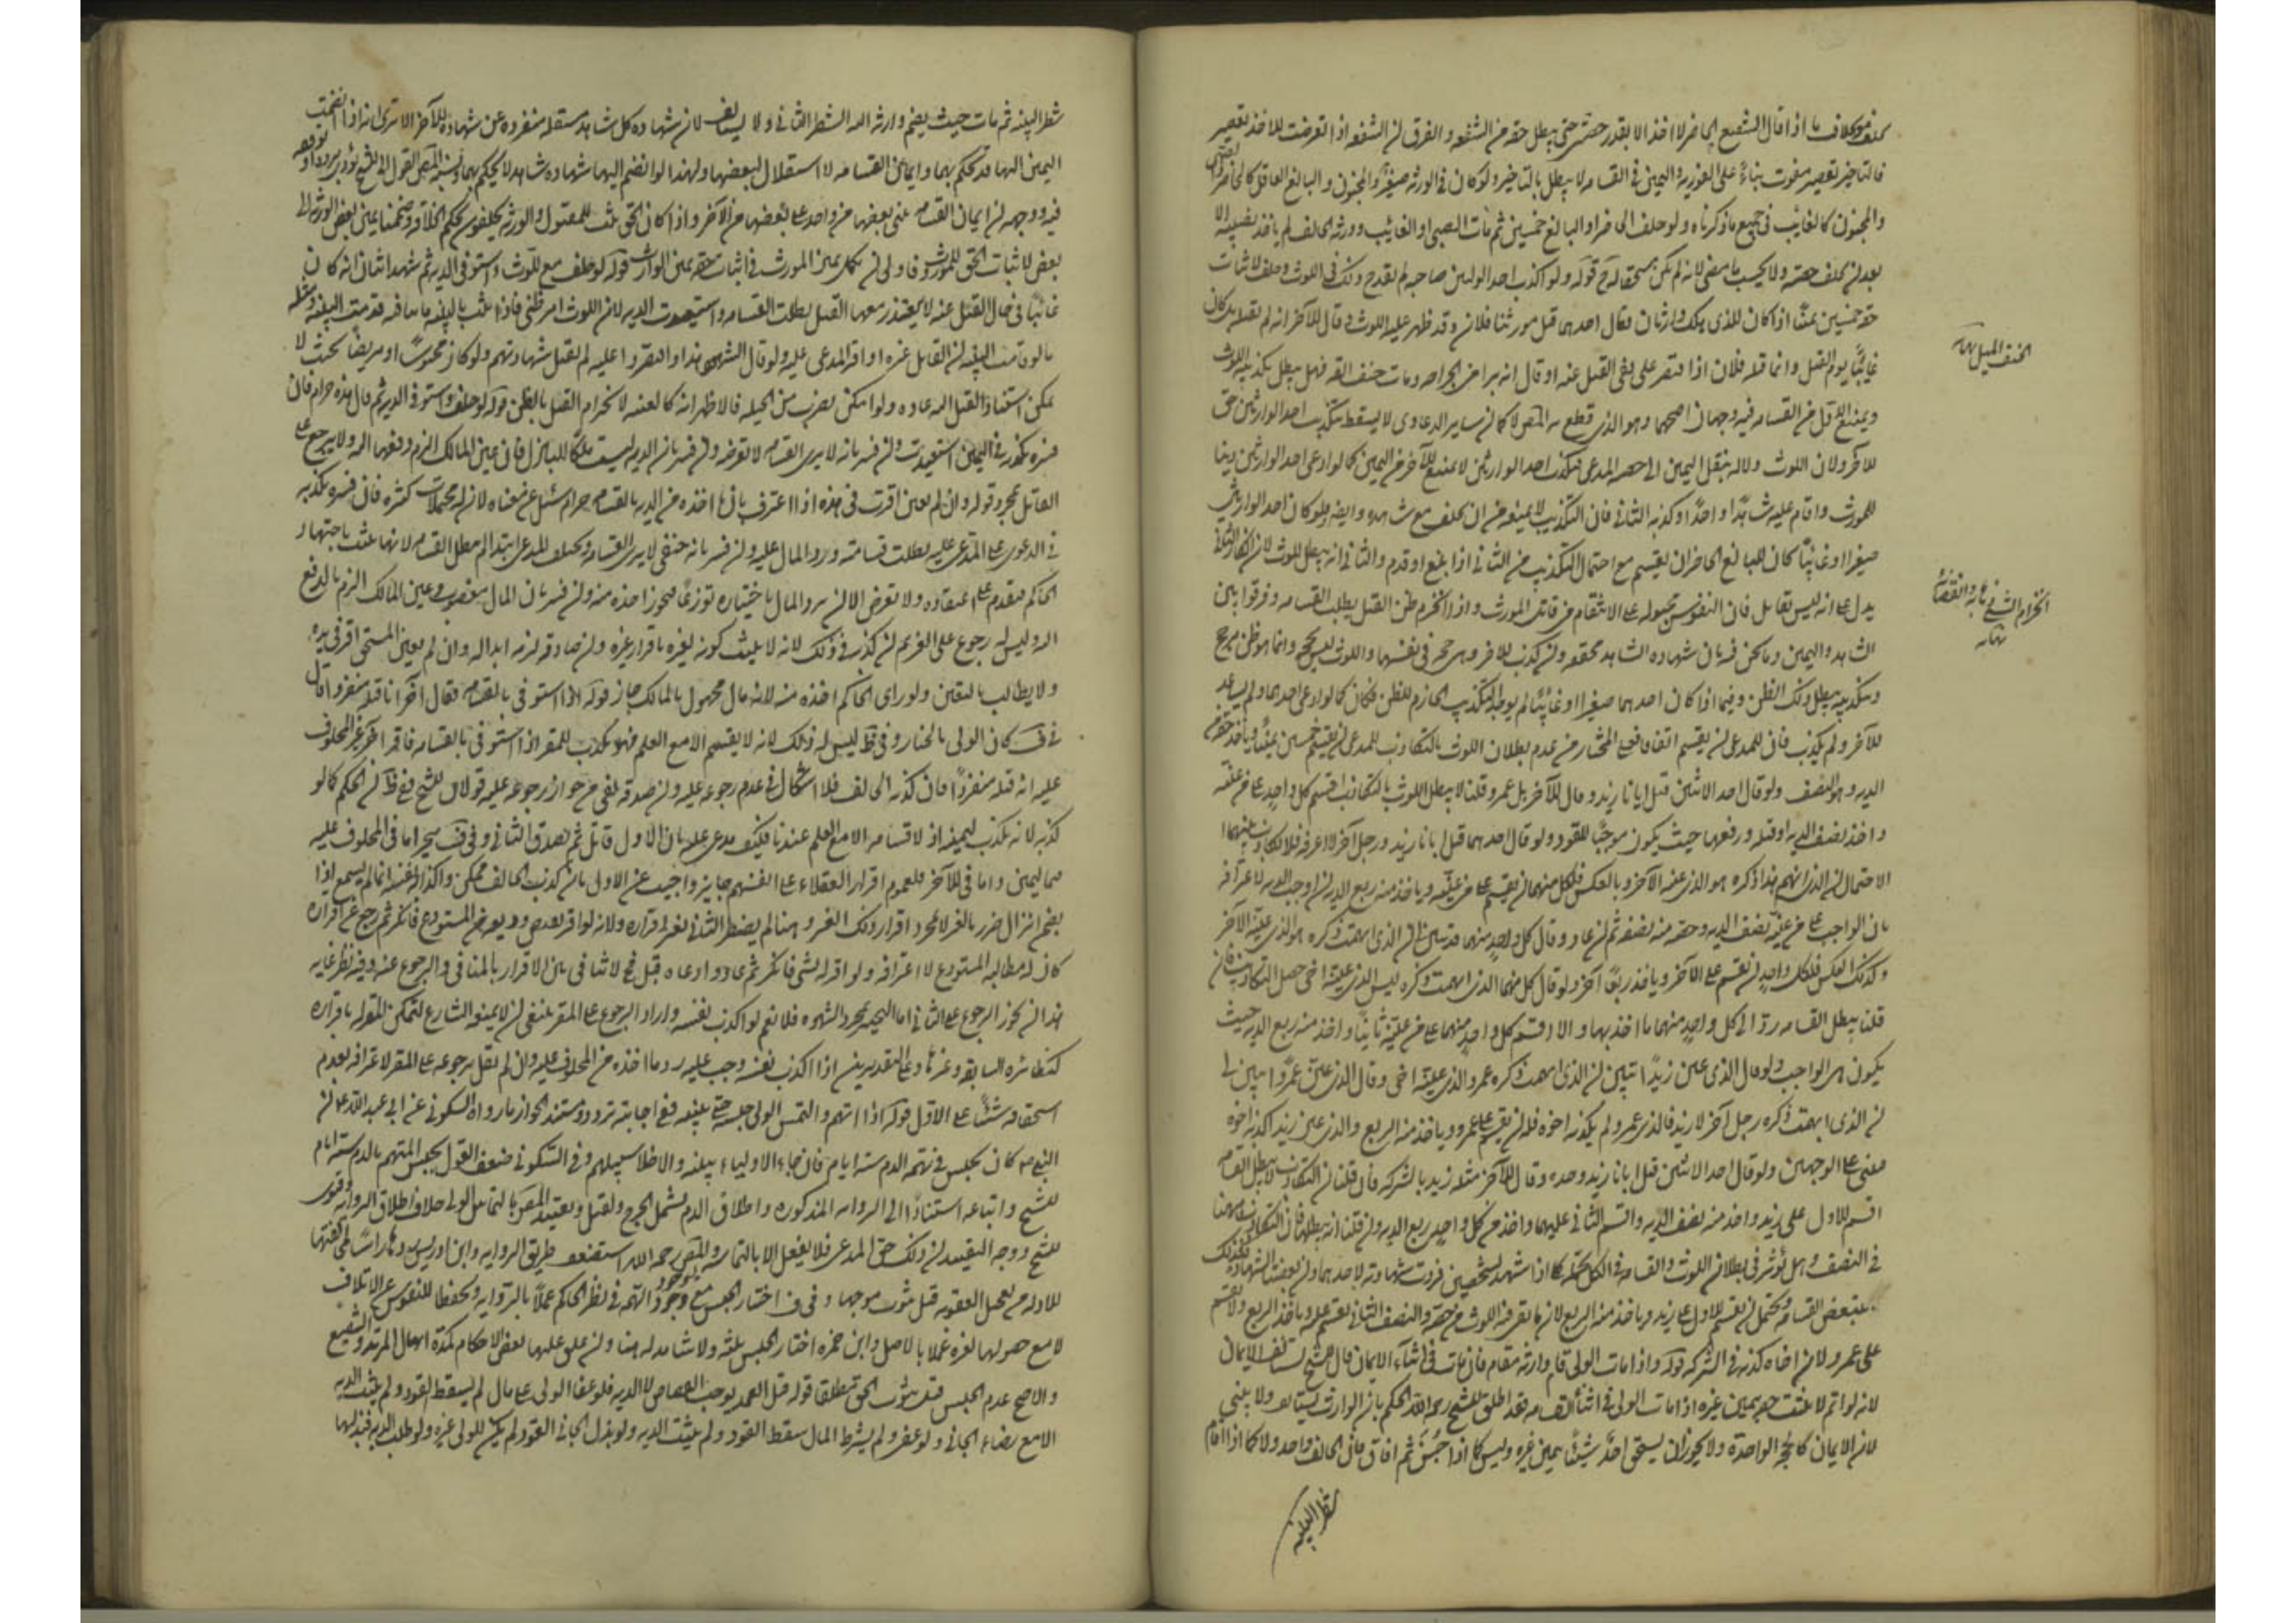 بخلاف ما اذا قال الشفيع الحاضر لا اخذ الا بقدر حصتى حتى يبطل حقه من الشفعه و الفرق ان الشفعه اذا تعرضت للاخذ
فالتاخير تقصير مفوت بناءً على الفوريه واليمين فى القسامه لا يبطل بالتاخير ولو كان فى الورثه صغير او مجنون و البالغ العاقل كالحاضر
والمجنون كالغايب فى جميع ما ذكرناه ولو حلف الحاضر او البالغ خمسين ثم مات الصبى او الغايب وورثه الحالف لم ياخذ نصيبه الا
بعد ان يحلف حصته ولا يحسب ما مضى لانه لم يكن مستحقا له ح قوله ولو اكذب احد الوليين صاحبه لم يقدح ذلك فى اللوث وحلف لاثبات
حقه خمسين يمينًا اذا كان للذى هلك وارثان فقال احدهما قتل مورثنا فلان وقد ظهر عليه اللوث وقال الآخر انه لم يقتله بل كان
غايبًا يوم القتل وانما قتله فلان اذا اقتصر على نفى القتل عنه او قال انه برا من الجراحه ومات حتف انفه فهل يبطل تكذيبه اللوث
ويمنع الاول من القسامه فيه وجهان اصحهما وهو الذى قطع به المص لا كما ان ساير الدعاوى لا يسقط بتكذيب احد الوارثين حق
الآخر ولان اللوث دلاله ينقل اليمين الى المدعى فتكذيب احد الوارثين لا يمنع الآخر من اليمين كما لو ادعى احد الوارثين دينا
للمورث واقام عليه شاهدًا واحدًا وكذبه الثانى فان التكذيب لا يمنعه من ان يحلف مع شاهده وايضا فلو كان احد الوارثين
صغيرا او غائبًا كان للبالغ الحاضر ان يقسم مع احتمال التكذيب من الثانى اذا بلغ او قدم والثانى انه يبطل اللوث لان انكار الثانى
يدل على انه ليس بقاتل فان النفوس مجبوله على الانتقام من قاتل المورث واذا انخرم ظن القتل بطلت القسامه وفرقوا بين
الشاهد واليمين وما نحن فيه بان شهاده الشاهد محققه وان كذب الآخر وهى حجه فى نفسها واللوث ليس بحجه وانما هو ظن مرجح
وبتكذيبه يبطل ذلك الظن وفيما اذا كان احدهما صغيرا او غائبًا لم يوجد التكذيب الخارم للظن فكان كما لو ادعى احدهما ولم يساعد
الآخر ولم يكذب فان للمدعى ان يقسم اتفاقا فعلى المختار من عدم بطلان اللوث بالتكاذب للمدعى ان يقسم خمسين يمينًا وياخذ حقه من
الديه وهو النصف ولو قال احد الاثنين قتل ابانا زيد وقال الآخر بل عمرو وقلنا لا يبطل اللوث بالتكاذب اقسم كل واحد على من عينه
واخذ نصف الديه او قتله ورفعها حيث يكون موجبًا للقود ولو قال احدهما قتل ابانا زيد ورجل آخر لا اعرفه فلا تكاذب بينهما
لاحتمال ان الذى ابهم هذا ذكره هو الذى عينه الآخر وبالعكس فلكل منهما ان يقسم على من عينه وياخذ منه ربع الديه
بان الواجب على من عينه نصف الديه وحصته منه نصفه ثم ان عاد وقال كل واحد منهما قد تبين ان الذى ابهمت ذكره هو الذى عينه الآخر
وكذلك العكس فلكل واحد ان يقسم على الآخر وياخذ ربعًا آخر ولو قال كل منهما الذى ابهمت ذكره ليس الذى عينه اخى حصل التكاذب فان
قلنا يبطل القسامه رد الى كل واحد منهما ما اخذ بها والا اقسم كل واحد منهما على من عينه ثانيًا واخذ منه ربع الديه حيث
يكون هى الواجب ولو قال الذى عين زيدًا تبين ان الذى ابهمت ذكره عمرو الذى عينه اخى وقال الذى عين عمرًوا تبين لى
ان الذى ابهمت ذكره رجل آخر لا زيد فالذى عين عمرو لم يكذبه اخوه فله ان يقسم على عمرو وياخذ منه الربع والذى عين زيد اكذبه اخوه
فيبنى على الوجهين ولو قال احد الاثنين قتل ابانا زيد وحده وقال الآخر قتله زيد بالشركه فان قلنا ان التكاذب لا يبطل القسامه
اقسم الاول على زيد واخذ منه نصف الديه واقسم الثانى عليهما واخذ من كل واحد ربع الديه وان قلنا انه يبطلها فان التكاذب هنا
فى النصف وهل يؤثر فى بطلان اللوث والقسامه فى الكل يحتمله كما اذا شهد لشخصين فردت شهادته لاحدهما وان بعضنا الشهاده فكذلك
يتبعض القسامه ويحتمل ان يقسم الاول على زيد وياخذ منه الربع لان ما بقى فيه اللوث من حصته والنصف الثانى يقسم عليه وياخذ الربع ولا يقسم
على عمرو لان اخاه كذبه فى الشركه قوله واذا مات الولى قام وارثه مقامه فان مات فى اثناء الايمان قال الشيخ يستانف الايمان
لانه لو اتم لاثبت حقه بيمين غيره اذا مات الولى فى اثناء القسامه فقد اطلق الشيخ رحمه الله الحكم بان الوارث يستانف ولا يبنى
لان الايمان كالحجه الواحدة ولا يجوز ان يستحق احد شيئًا بيمين غيره وليس كما اذا جن ثم افاق فان الحالف واحد ولا كما اذا اقام
شطر البينه
الحنف الميل نهايه
نهايه
شطر البينه ثم مات حيث يضم وارثه اليه الشطر الثانى ولا يستانف لان شهاده كل شاهد مستقله منفرده عن شهاده الآخر الا ترى انه اذا انضمت
اليمين اليها قد يحكم بهما وايمان القسامه لا استقلال لبعضها ولهذا لو انضم اليها شهاده شاهد لا يحكم بهما ونسبه المص القول الى الشيخ يؤذن بتردده او توقفه
فيه ووجهه ان ايمان القسامه يبنى بعضها من واحد على بعضها من الآخر واذا كان الحق يثبت للمقتول والورثه يحلفون بحكم الخلافه وضممنا يمين بعض الورثه الى
بعض لاثبات الحق للمورث فاولى ان نكمل يمين المورث فى اثبات حقه بيمين الوارث قوله لو حلف مع اللوث واستوفى الديه ثم شهد اثنان انه كان
غائبًا فى حال القتل غيبه لا يقدر معها القتل بطلت القسامه واستعيدت الديه لان اللوث امر ظنى فاذا ثبت بالبينه ما ينافيه قدمت البينه ومثله
ما لو قامت البينه ان القاتل غيره او اقر المدعى عليه ولو قال الشهود هذا واقتصروا عليه لم يقبل شهادتهم ولو كان محبوسًا او مريضًا بحيث لا
يمكن استناد القتل اليه عاده ولو امكن بضرب من الحيله فالاظهر انه كالغيبه لانخرام القتل بالظن قوله لو حلف واستوفى الديه ثم قال هذه حرام فان
فسره بكذبه فى اليمين استعيدت وان فسر بانه لا يرى القسامه لا تعرضه وان فسر بان الديه ليست ملكًا للباذل فان عين المالك الزم دفعها اليه ولا يرجع على
القاتل بمجرد قوله وان لم يعين اقرت فى يده اذا اعترف بان ما اخذه من الديه بالقسامه حرام سئل عن معناه لان له محتملات كثيره فان فسره بكذبه
فى الدعوى على المدعى عليه بطلت قسامته ورد المال عليه وان فسر بانه حنفى لا يرى القسامه وتحليف المدعى ابتداء لم يبطل القسامه لانها تثبت باجتهاد
الحاكم فيقدم على اعتقاده ولا تعرض الا ان يرد المال باختياره تورعًا فيجوز اخذه منه وان فسر بان المال مغصوب وعين المالك الزم بالدفع
اليه وليس له رجوع على الغريم ان كذبه فى ذلك لانه لا يثبت كونه لغيره باقرار غيره وان صادقه لزمه ابداله وان لم يعين المستحق اقر فى يده
ولا يطالب بالتعيين ولو راى الحاكم اخذه منه لانه مال مجهول المالك جاز قوله اذا استوفى بالقسامه فقال آخر انا قتلته منفردا قال
فى ف كان الولى بالخيار وفى ط ليس له ذلك لانه لا يقسم الا مع العلم فهو مكذب للمقر اذا استوفى بالقسامه فاقر آخر غير المحلوف
عليه انه قتله منفردًا فان كذبه الحالف فلا اشكال فى عدم رجوعه عليه وان صدقه ففى جواز رجوعه عليه قولان للشيخ ففى ط ان الحكم كما لو
كذبه لانه مكذب ليمينه اذ لا قسامه الا مع العلم عندنا فكيف يدعى علمه بان الاول قاتل ثم يصدق الثانى وفى ف يتخير اما فى المحلوف عليه
فباليمين واما فى الآخر فلعموم اقرار العقلاء على انفسهم جايز واجيب عن الاول بان كذب الحالف ممكن واكذابه نفسه انما لم يسمع اذا
تضمن انزال ضرر بالغير لا بمجرد اقرار ذلك الغير وهنا لم يتضمن الثانى لغير اقراره ولانه لو اقر بقبض وديعه من المستودع فانكر ثم رجع عن اقراره
كان له مطالبه المستودع لاعترافه ولو اقر له بشى فانكر ثم عاد وادعاه قبل فلا تنافى بين الاقرار بالمنافى والرجوع عنه وفيه نظر غايه
هذا ان يجوز الرجوع على الثانى اما التخيير بمجرد الشهوه فلا نعم لو اكذب نفسه واراد الرجوع على المقر ينبغى ان لا يمنعه الشارع لتمكن المقر له باقراره
كنظائره السابقه وغيرها وعلى التقديرين اذا اكذب نفسه وجب عليه رد ما اخذه من المحلوف عليه وان لم نقل برجوعه على المقر لاعترافه بعدم
استحقاقه شيئًا على الاول قوله اذا اتهم والتمس الولى حبسه حتى بينه ففى اجابته تردد ومستند الجواز ما رواه السكونى عن ابى عبد الله ع ان
النبى ص كان يحبس فى تهمه الدم سته ايام فان جاء الاولياء ببينه والا خلا سبيلهم وفى السكونى ضعف القول بحبس المتهم بالدم سته ايام
للشيخ واتباعه استنادًا الى الروايه المذكوره واطلاق الدم يشمل الجرح والقتل وتقييد المص بالتماس الولى خلاف اطلاق الروايه وفتوى
الشيخ ووجه التقييد ان ذلك حق المدعى فلا يفعل الا بالتماسه والمص رحمه الله استضعف طريق الروايه وابن ادريس رده راسًا لمخالفتها
للادله من تعجيل العقوبه قبل ثبوت موجبها وفى ف اختار الحبس مع وجود التهمه فى نظر الحاكم عملًا بالروايه وتحفظا للنفوس عن الاتلاف
لا مع حصولها لغيره عملا بالاصل وابن حمزه اختار الحبس ثلثه ولا شاهد له هنا وان علق عليها بعض الاحكام كمدة امهال المرتد والشفيع
والاصح عدم الحبس قبل ثبوت الحق مطلقا قوله قتل العمد يوجب القصاص لا الديه فلو عفا الولى على مال لم يسقط القود ولم يثبت الديه
الا مع رضاء الجانى ولو عفى ولم يشرط المال سقط القود ولم يثبت الديه ولو بذل الجانى القود لم يكن للولى غيره ولو طلب الديه فبذلها